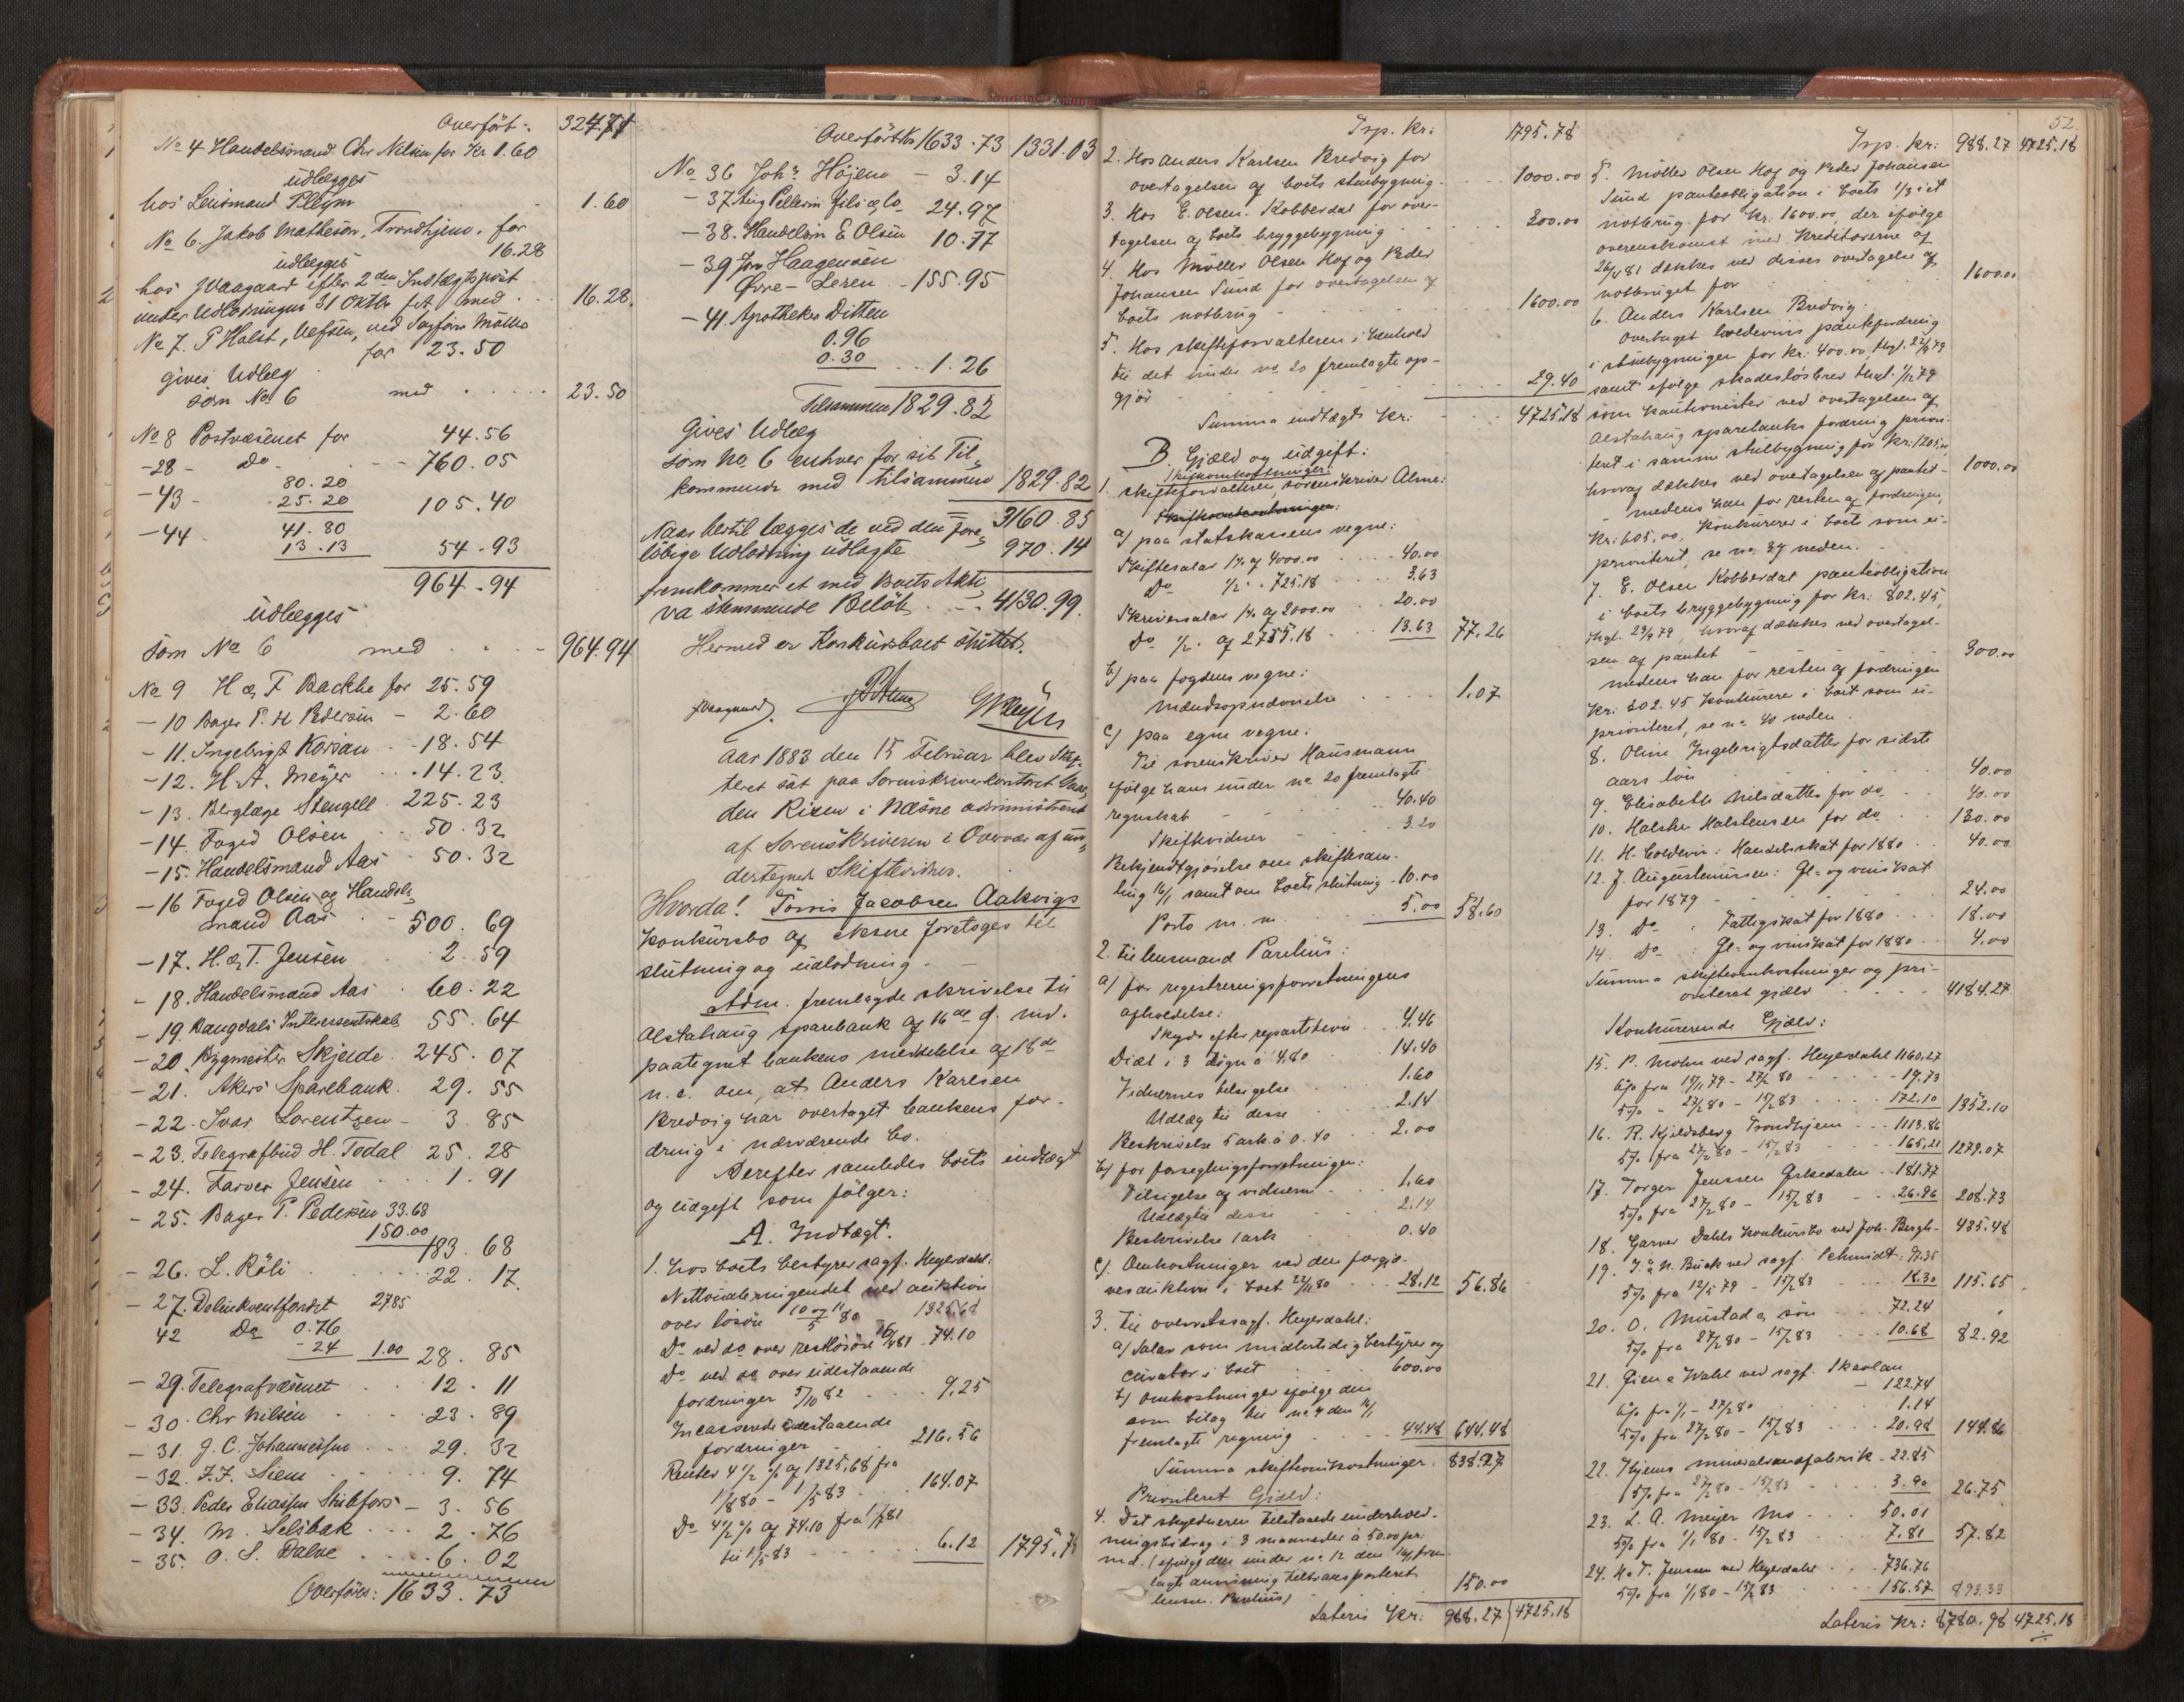 Overført: 324.71
No 4 Handelsmand Chr Nilsen for Kr 1.60
udlægges
hos Lensmand Pleym - 1.60
No 6. Jakob Matheson, Trondhjem, for
16.28
udlægges
hos JVaagaard efter 2den Indtægtspost
under Udlodningen 31 Oktbr fst med . . . 16.28.
No 7. P Holst, Vefsen, ved Sagfører Möller
for 23.50
gives Udlæg
som No 6 med . . . . . 23.50
No 8 Postvæsenet for 44.56
-28- Do - . - - 760.05
-43- 80.20
25.20 105.40
-44 41.80
13.13 54.93
964.94
udlægges
som No 6 med . . . - 964.94
No 9 H & F Bachke for 25.59
- 10 Bager P. H Pedersen - 2.60
- 11. Ingebrigt Korsan - - 18.54
- 12. H. A. Meyer . . . 14.23.
- 13. Berglæge Stengell. 225.23
- 14. Foged Olsen . . 50.32
- 15. Handelsmand Aas . 50.32
- 16 Foged Olsen og Handels-
mand Aas . - 500.69
- 17. H. & T. Jensen . 2.59
- 18. Handelsmand Aas . 60.22
- 19. Rangdals Interessentskab 55.64
- 20. Bygmester Skjelde. 245.07
- 21. Akers Sparebank. 29.55
- 22. Ivar Lorentzen - 3.85
- 23. Telegrafbud H. Todal 25.28
- 24. Farver Jensen . . 1.91
- 25. Bager P. Pedersen 33.68
150.00
183.68
- 26. L. Röli . . . . . 22.17.
- 27. Delinkventfondet 27.85
42 Do 0.76
- 24 1.00 28.85
- 29. Telegrafvæsenet . . 12.11
- 30. Chr Nilsen . . . 23.89
- 31. J. C. Johannessen . . . 29.32
- 32. F. F. Siem . . . . 9.74
- 33. Peder Eliassen Stribfors - 3.56
- 34. M. Selsbak . . . 2.76
- 35. O. S. Dalve . . . . 6.02
Overføres: 1633.73
Overført Kr 1633.73 1331.03
No 36 Johs Høyem - 3.14
- 37 Aug Pellerin fils & Co - 24.97
- 38. Handelsm E Olsen 10.77
- 39 Jon Haagensen
Øvre-Leren . - 155.95
- 41. Apotheker Ditten
0.96
0.30 . . 1.26
Tilsammen 1829.82
Gives Udlæg
som No. 6 enhver for sit Til-
kommende med tilsammen 1829.82
3160.85
Naar hertil lægges de ved den fore-
løbige Udlodning udlagte 970.14
fremkommer et med Boets Akti-
va stemmende Beløb . . - 4130.99.
Hermed er Konkursboet sluttet.
JVaagaard. GPleym
Aar 1883 den 15 Februar blev Skif-
teret sat paa Sorenskriverkontoret Gaar-
den Risen i Næsne administreret
af Sorenskriveren i Overvær af un-
dertegnede Skiftevidner.
Hvorda! Tørris Jacobsen Aakvigs
konkursbo af Næsne foretoges til
slutning og udlodning. -
Adm. fremlagde skrivelse til
Alstahaug sparebank af 16de d. md.
paategnet bankens meddelelse af 18de
n. e. om, at Anders Karlsen
Bredvig har overtaget bankens for-
dring i nærværende bo.
Derefter samledes boets indtægt
og udgift som følger:
A. Indtægt.
1. hos boets bestyrer sagf. Heyerdahl:
Nettoauktionsindtægt ved auktion
over løsøre 10 og 11/5 80 1325.68
Do ved do over restløsøre 16/7 81 - 74.10
Do ved do over udestaaende
fordringer 5/10 82 . . . 9.25
Incasserede udestaaende
fordringer . . . 216.56
Renter 4 1/2 % af 1325,68 fra
1/8 80 - 1/5 83 . . . 164.07
Do 4 1/2 % af 74.10 fra 1/7 81
til 1/5 83 . . . . 6.12 1795.78
Trsp. Kr: 1795.78
2. Hos Anders Karlsen Bredvig for
overtagelsen af boets stuebygning . . . . 1000.00
3. Hos E. Olsen. Kobberdal for over-
tagelsen af boets bryggebygning . . . 300.00
4. Hos Møller Olsen Hof og Peder
Johansen Sund for overtagelsen af
boets notbrug . . . . . 1600.00
5. Hos skifteforvalteren i henhold
til det under no 20 fremlagte op-
gjør . . . . . 29.40
Summa indtægt Kr: . . 4725.18
B. Gjæld og udgift:
Skifteomkostninger:
1. skifteforvalteren, sorenskriver Alme:
Skifteomkostninger:
a) paa statskassens vegne:
Skiftesalar 1% af 4000.00 . . . 40.00
Do 1/2 - . 725.18 . . . . 3.63
Skriversalar 1% af 2000.00 . . 20.00
Do 1/2 . af 2725.18 . . . 13.63 77.26
b) paa fogdens vegne:
Mandsopnævnelse . . . . 1.07
c) paa egne vegne:
Til sorenskriver Hausmann
ifølge hans under no 20 fremlagte
regnskab . . . . 40.40
Skiftevidner . . . 3.20
Bekjendtgjørelse om skiftesam-
ling 16/1 samt om boets slutning - 10.00
Porto m. m. . . . 5.00 58.60
2. til lensmand Parelius:
a) for registreringsforretningens
afholdelse:
Skyds efter repartition . . 4.46
Diæt i 3 døgn à 4.80 . . 14.40
Vidnernes tilsigelse . . 1.60
Udlæg til disse . . . 2.14
Beskrivelse 5 ark à 0.40 . . 2.00
b) for forseglingsforretningen:
Tilsigelse af vidnerne . . 1.60
Udlæg til disse . . . 2.14
Beskrivelse 1 ark . . . 0.40
c) Omkostninger ved den forgjæ-
ves auktion i boet 22/11 80 . . . 28.12 56.86
3. til overretssagf. Heyerdahl:
a) Salar som midlertidig bestyrer og
curator i boet . . . 600.00
b) omkostninger ifølge den
som bilag til no 4 den 16/1
fremlagte regning . . . . 44.48 644.48
Summa skifteomkostninger . 838.27
Prioriteret Gjæld:
4. Det skyldneren tilstaaede underhold-
ningsbidrag i 3 maaneder à 50.00 pr.
md. (ifølge den under no 12 den 16/1 frem-
lagte anvisning tiltransporteret
lensm. Parelius) 150.00
Lateris Kr: 988.27 4725.18
52
Trsp. Kr: 988.27 4725.18
5. Møller Olsen Hof og Peder Johansen
Sund panteobligation i boets 1/3 i et
notbrug for Kr. 1600.00, der ifølge
overenskomst med Kreditorerne af
26/4 81 dækkes ved disses overtagelse af
notbruget for . . . . 1600.00
6. Anders Karlsen Bredvig:
overtaget Coldevins pantefordring
i stuebygningen for Kr. 400.00, thgl. 22/9 79
samt ifølge skadesløsbrev thgl. 1/12 79
som kautionister ved overtagelsen af
Alstahaug sparebanks fordring priori-
teret i samme stuebygning for Kr: 1205,00
hvoraf dækkes ved overtagelsen af pantet - 1000.00
- medens han for resten af fordringen,
Kr: 605,00, konkurerer i boet som ei-
prioriteret, se no. 37 neden.
7. E. Olsen Kobberdal panteobligation
i boets bryggebygning for Kr: 802,45,
thgl. 23/9 79, hvoraf dækkes ved overtagel-
sen af pantet . . . . 300.00
medens han for resten af fordringen
Kr: 502.45 konkurerer i boet som ei-
prioriteret, se no. 40 neden.
8. Oline Ingebrigtsdatter for sidste
aars løn . . . . 40.00
9. Elisabeth Nilsdatter for do . . 40.00
10. Halsten Halstensen for do . . 130.00
11. H. Coldevin: Handelsskat for 1880 . . 40.00
12. J. Augustinussen: Gl- og vinskat
for 1879 - . . . . 24.00
13. Do . Fattigskat for 1880 . . . 18.00
14. Do : Gl- og vinskat for 1880 . . 4.00
Summa skifteomkostninger og pri-
oriteret gjæld . . . . 4184.27
Konkurerende Gjæld:
15. P. Mohn ved sagf. Heyerdahl 1160.27
6% fra 19/11 79 - 27/2 80 . . . . 19.73
5% " 27/2 80 - 15/2 83 . . . 172.10 1352.10
16. R. Kjeldsberg Trondhjem . . . 1113.86
5% fra 27/2 80 - 15/2 83 . . . 165.21 1279.07
17. Torger Jenssen . . 181.77
5% fra 27/2 80 - 15/2 83 . . . 26.96 208.73
18. Garver Dahls konkursbo ved Joh. Bergh - 435.48
19. J. & N. Buck ved sagf. Schmidt: 97.35
5% fra 12/5 79 - 15/2 83 . . . 18.30 115.65
20. O. Mustad & søn . . . 72.24
5% fra 27/2 80 - 15/2 83 . . . 10.68 82.92
21. Giem & Wahl ved sagf. Skavlan
- 122.74
6% fra 1/1 - 27/2 80 . . . . 1.14
5% fra 27/2 80 - 15/2 83 . . . 20.98 144.86
22. Thjems mineralvandfabrik - 22.85
5% fra 27/2 80 - 15/2 83 . . . 3.90 26.75
23. L. A. Meyer Mo . . . . 50.01
5% fra 1/1 80 - 15/2 83 . . . 7.81 57.82
24. H. & T. Jenssen ved Heyerdahl . . 736.76
5% fra 1/1 80 - 15/2 83 . . . 156.57 893.33
Lateris Kr: 8780.98 4725.18